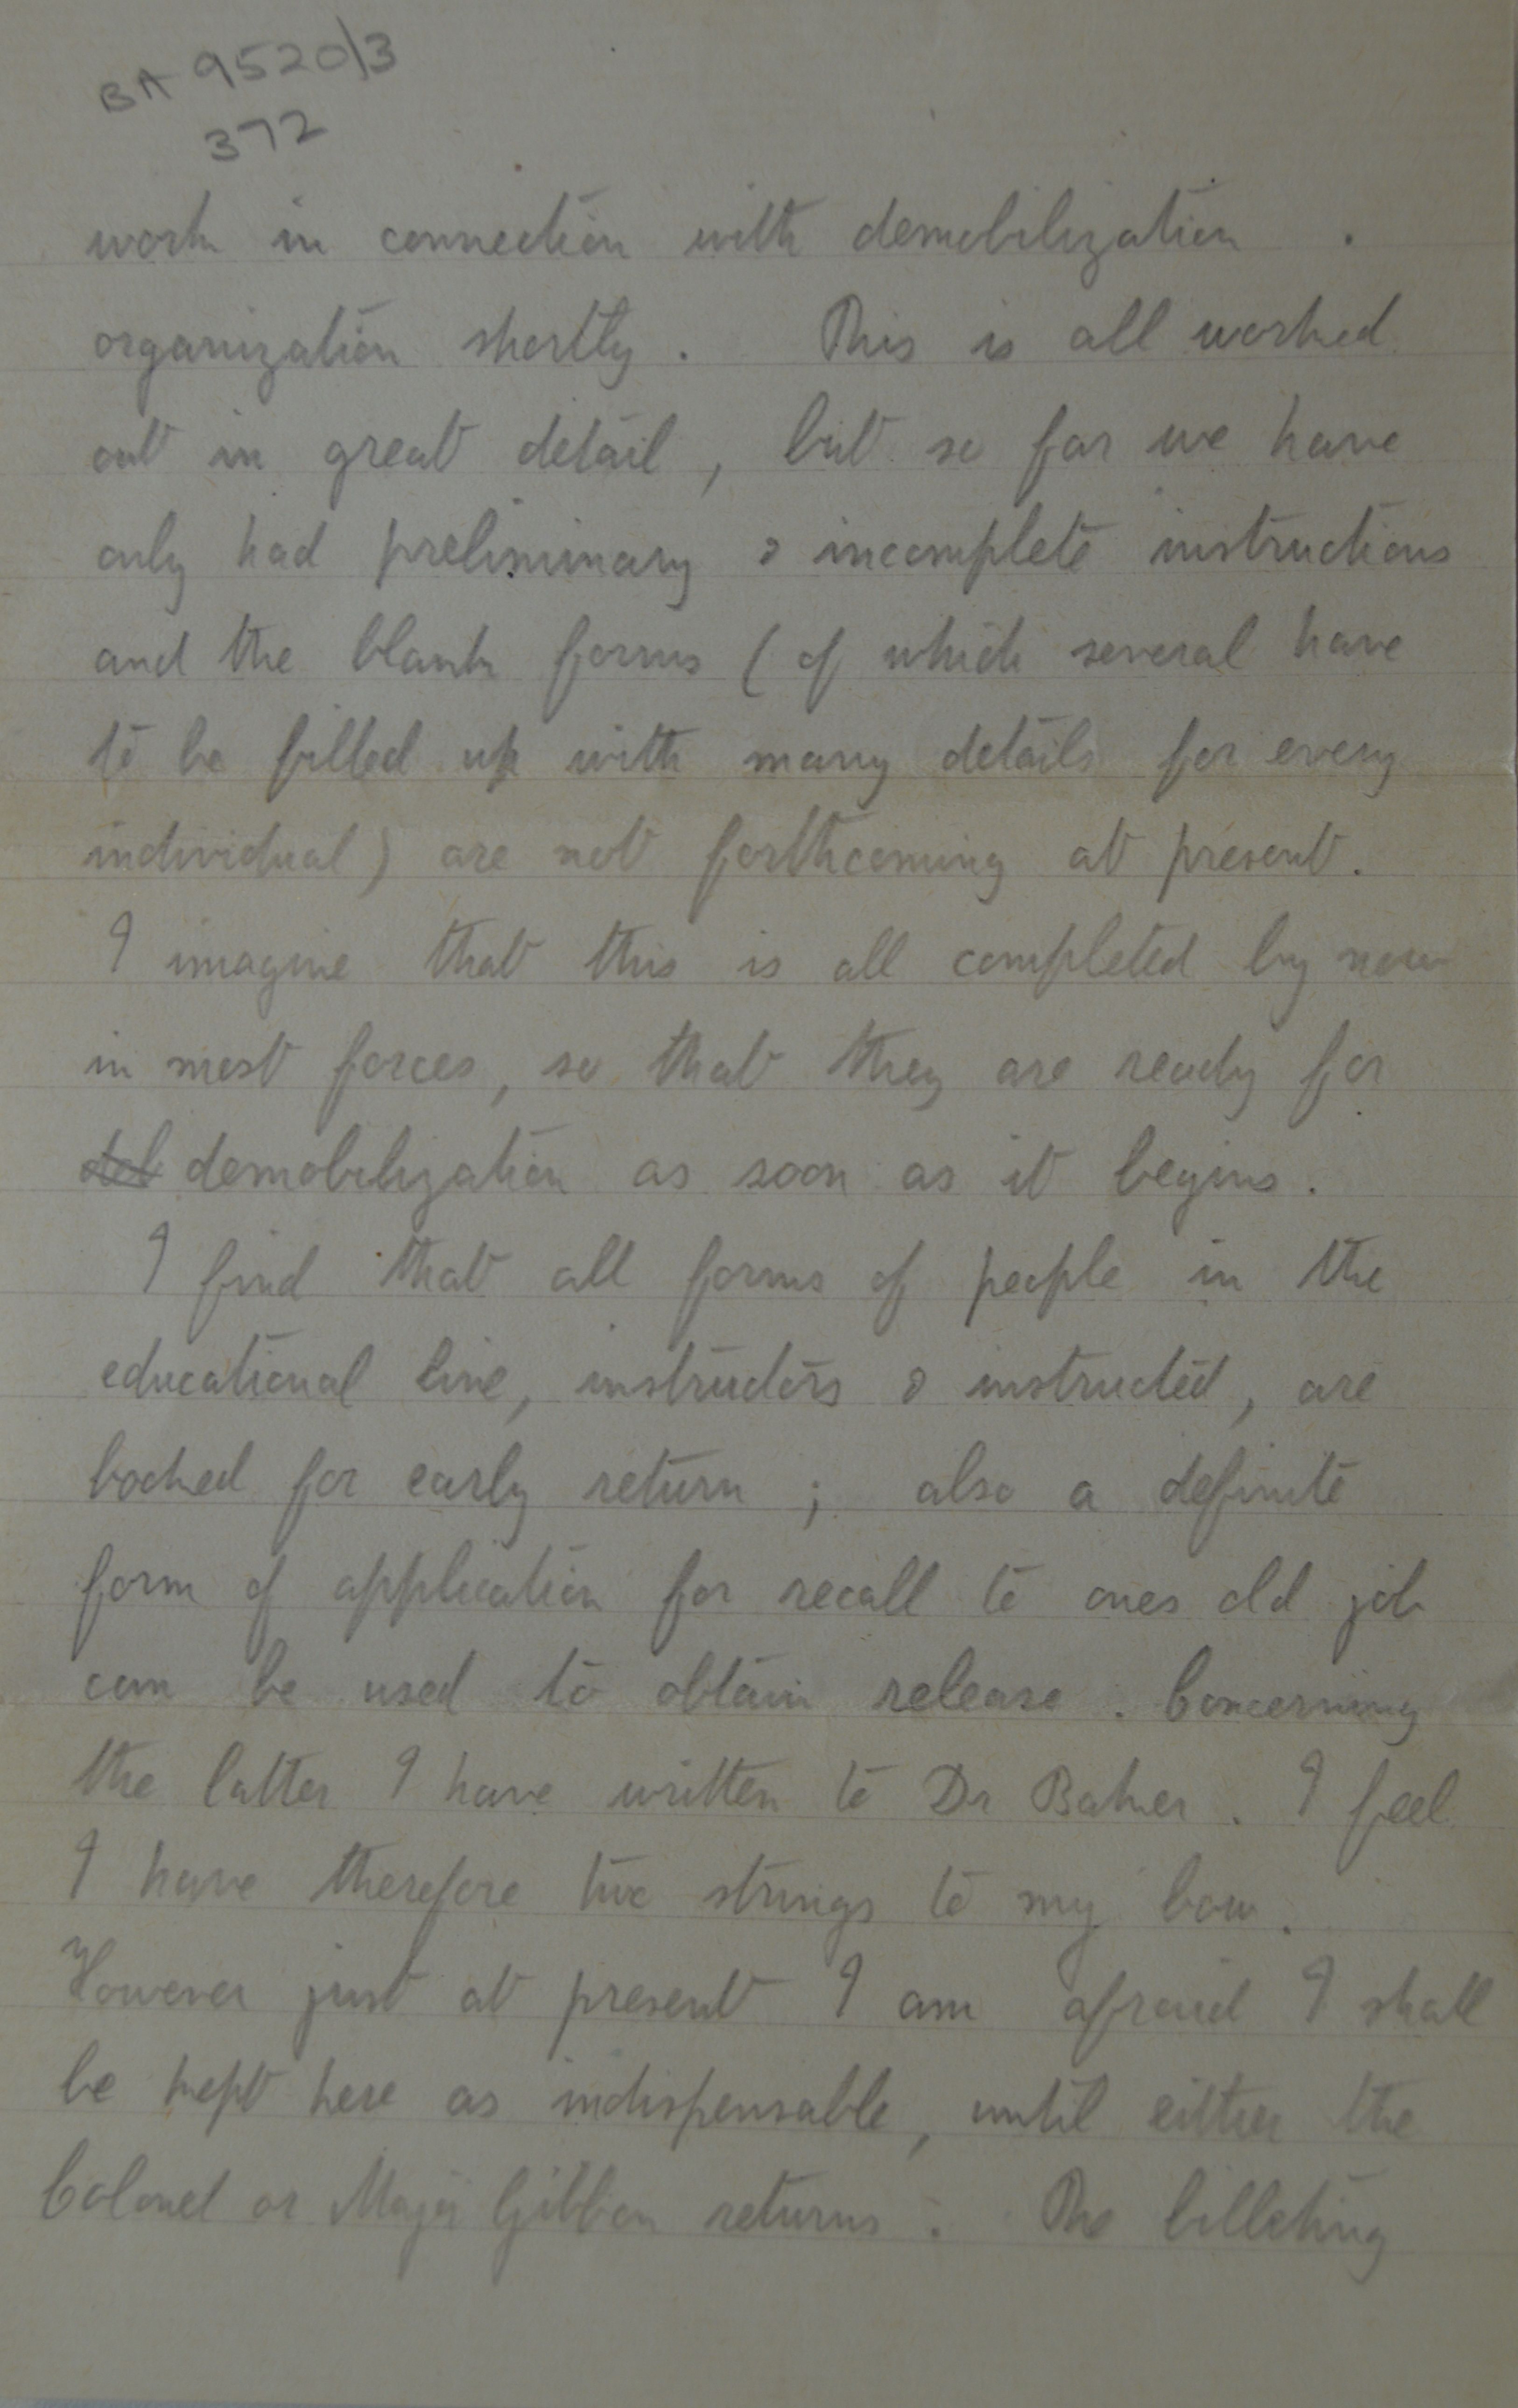 BA 9520/3
372
work in connection with demobilization .
organization shortly. This is all worked
out in great detail, but so far we have
only had preliminary & incomplete instructions
and the blank forms (of which several have
to be filled up with many details for every
individual) are not forthcoming at present.
I imagine that this is all completed by now
in most forces, so that they are ready for
del demobilization as soon as it begins.
I find that all forms of people in the
educational line, instructors & instructed, are
booked for early return ; also a definite
form of application for recall to ones old job
can be used to obtain release. Concerning
the latter I have written to Dr Baker. I feel
I have therefore two strings to my bow.
However just at present I am afraid I shall
be kept here as indispensable, until either the
Colonel or Major Gibbon returns. The billeting